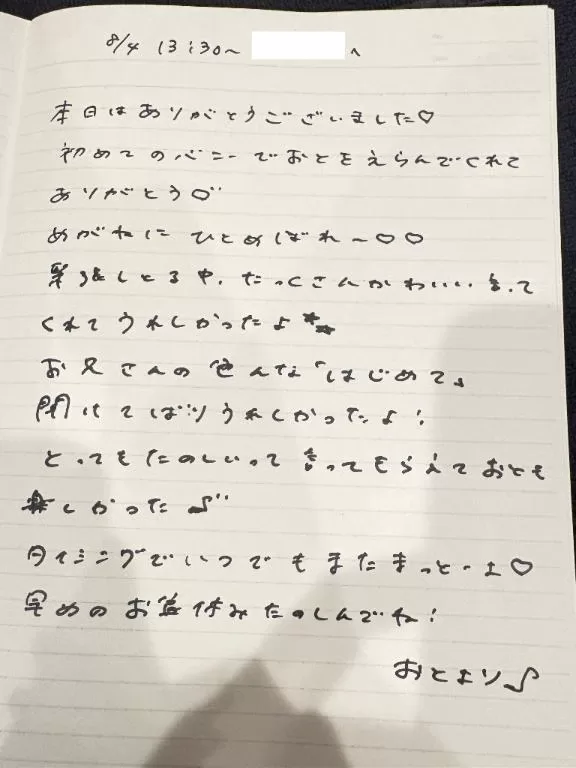 8/4 13:30~ へ
本日はありがとうございました♡
初めてのバニーでおとをえらんでくれて
ありがとう♡
めがねに ひとめぼれ~♡♡
緊張しとる中、たっくさんかわいい言って
くれてうれしかったよ
お兄さんの色んな「はじめて」
聞けてばりうれしかったよ!
とってもたのしいって言ってもらえておとも
しかった♪
タイミングでいつでもまたまっとーよ♡
早めのお盆休みたのしんでね!
おとより♪